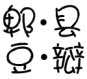 郫·县
豆·瓣